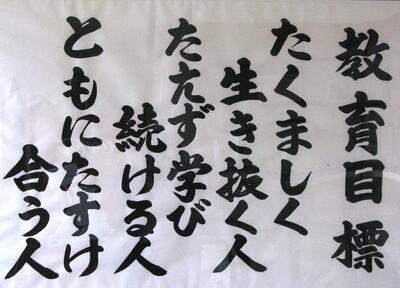 教育目標
たくましく
生き抜く人
たえず学び
続ける人
ともにたすけ
合う人